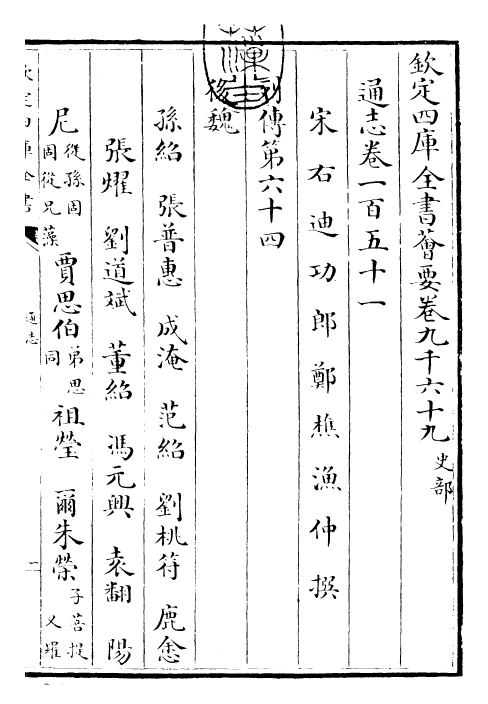 欽定四庫全書薈要卷九千六十九 史部
通志卷一百五十一
宋右迪功郎鄭樵漁仲撰
列傳第六十四
後魏
孫紹 張普惠 成淹 范紹 劉桃符 鹿悆
張燿 劉道斌 董紹 馮元興 袁翻 陽
尼 從孫固 固從兄藻 賈思伯 弟思同 祖瑩 爾朱榮 子菩提 乂羅
欽定四庫全書
通志
一